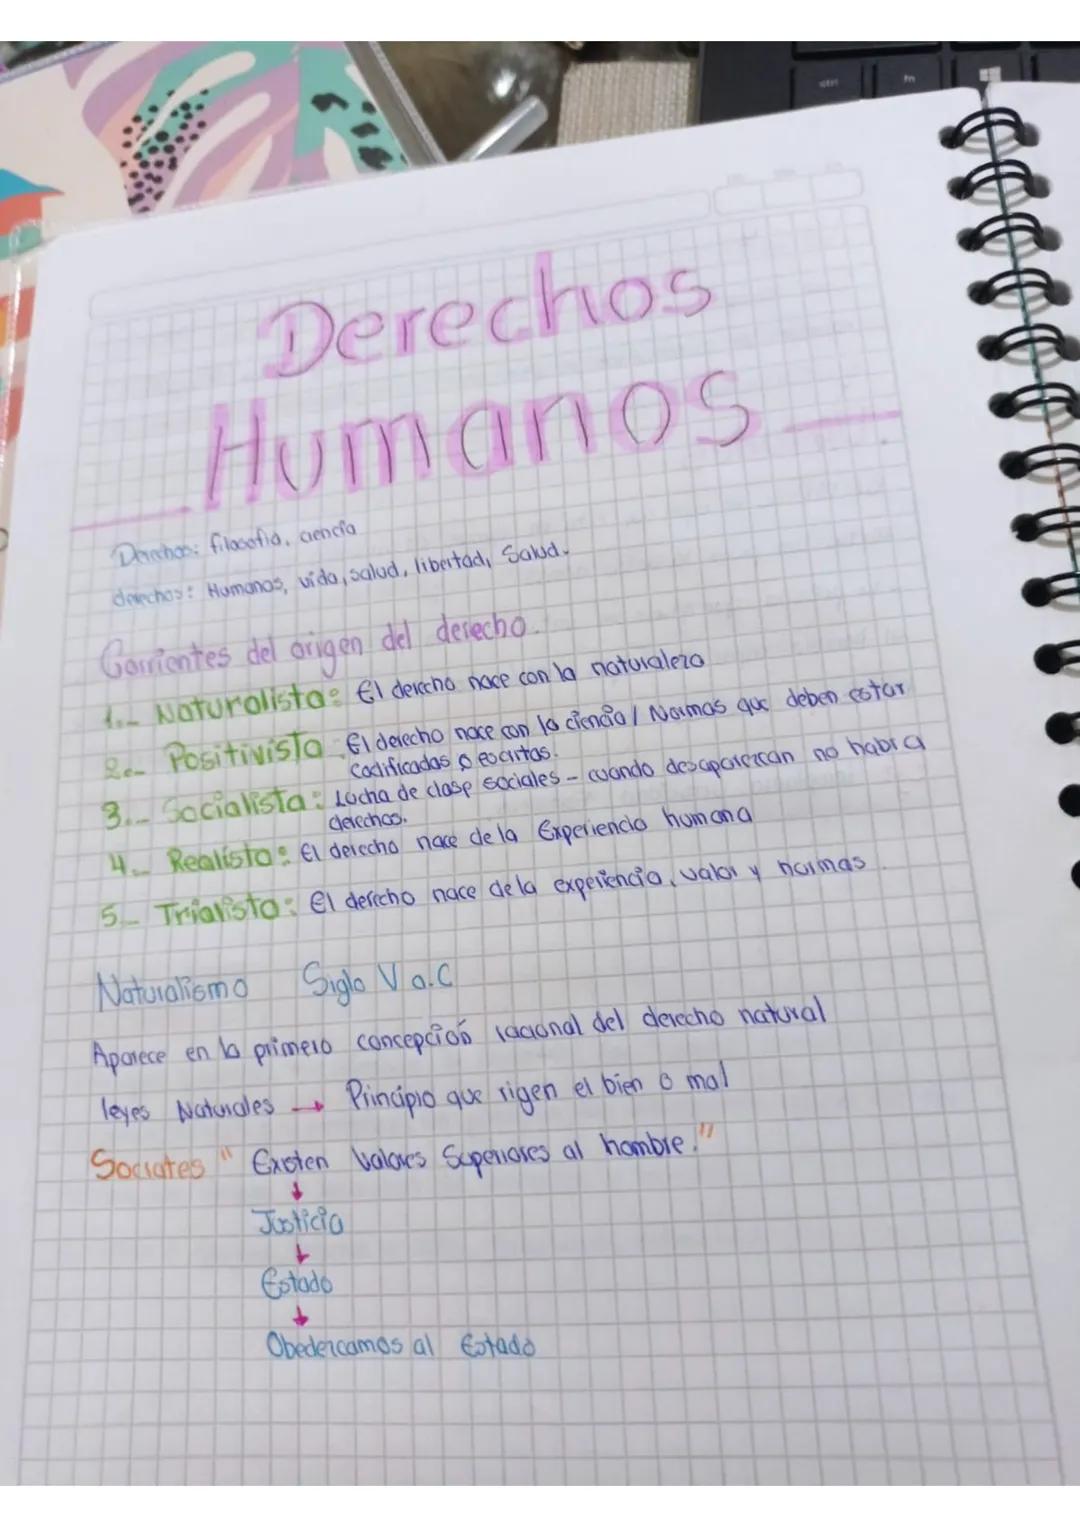 Derechos
Humanos
Derechos: filosofia, ciencia
derechos: Humanos, vida, salud, libertad, Salud.
Corrientes del origen del derecho.
1.- Naturalista: El derecho nace con la naturaleza
2.- Positivista: El derecho nace con la ciencia / Normas que deben estar
codificadas o escritas.
3.- Socialista: Lucha de clase sociales - cuando desaparezcan no habra
derechos.
4.- Realista: El derecho nace de la Experiencia humana
5.- Trialista: El derecho nace de la experiencia, valor y normas.
Naturalismo Siglo V a.C
Aparece en la primera concepción racional del derecho natural
leyes Naturales → Principio que rigen el bien o mal
Socrates " Existen Valores Superiores al hombre."
↓
Justicia
↓
Estado
↓
Obedezcamos al Estado
ctrl
fn